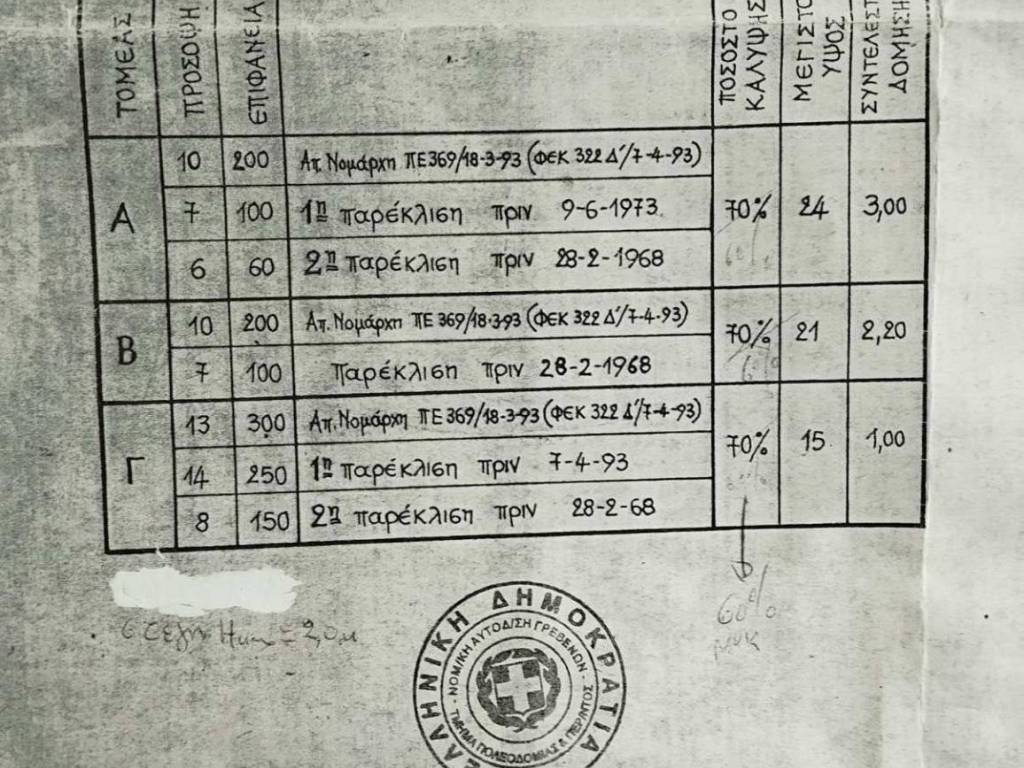 ΤΟΜΕΑΣ ΠΡΟΣΟΨΗ ΕΠΙΦΑΝΕΙΑ ΠΟΣΟΣΤΟ ΚΑΛΥΨΗΣ ΜΕΓΙΣΤΟ ΥΨΟΣ ΣΥΝΤΕΛΕΣΤ ΔΟΜΗΣΗ
Α 70% 24 3,00
10 200 Απ. Νομάρχη ΠΕ 369/18-3-93 (ΦΕΚ 322 Δ'/7-4-93)
7 100 1η παρέκλιση πριν 9-6-1973
6 60 2η παρέκλιση πριν 28-2-1968
Β 70% 21 2,20
10 200 Απ. Νομάρχη ΠΕ 369/18-3-93 (ΦΕΚ 322 Δ'/7-4-93)
7 100 Παρέκλιση πριν 28-2-1968
Γ 70% 15 1,00
13 300 Απ. Νομάρχη ΠΕ 369/18-3-93 (ΦΕΚ 322 Δ'/7-4-93)
14 250 1η παρέκλιση πριν 7-4-93
8 150 2η παρέκλιση πριν 28-2-68
60%
ΕΛΛΗΝΙΚΗ ΔΗΜΟΚΡΑΤΙΑ
ΝΟΜ/ΚΗ ΑΥΤΟΔ/ΣΗ ΓΡΕΒΕΝΩΝ
ΤΜΗΜΑ ΠΟΛΕΟΔΟΜΙΑΣ & ΠΕΡ/ΝΤΟΣ